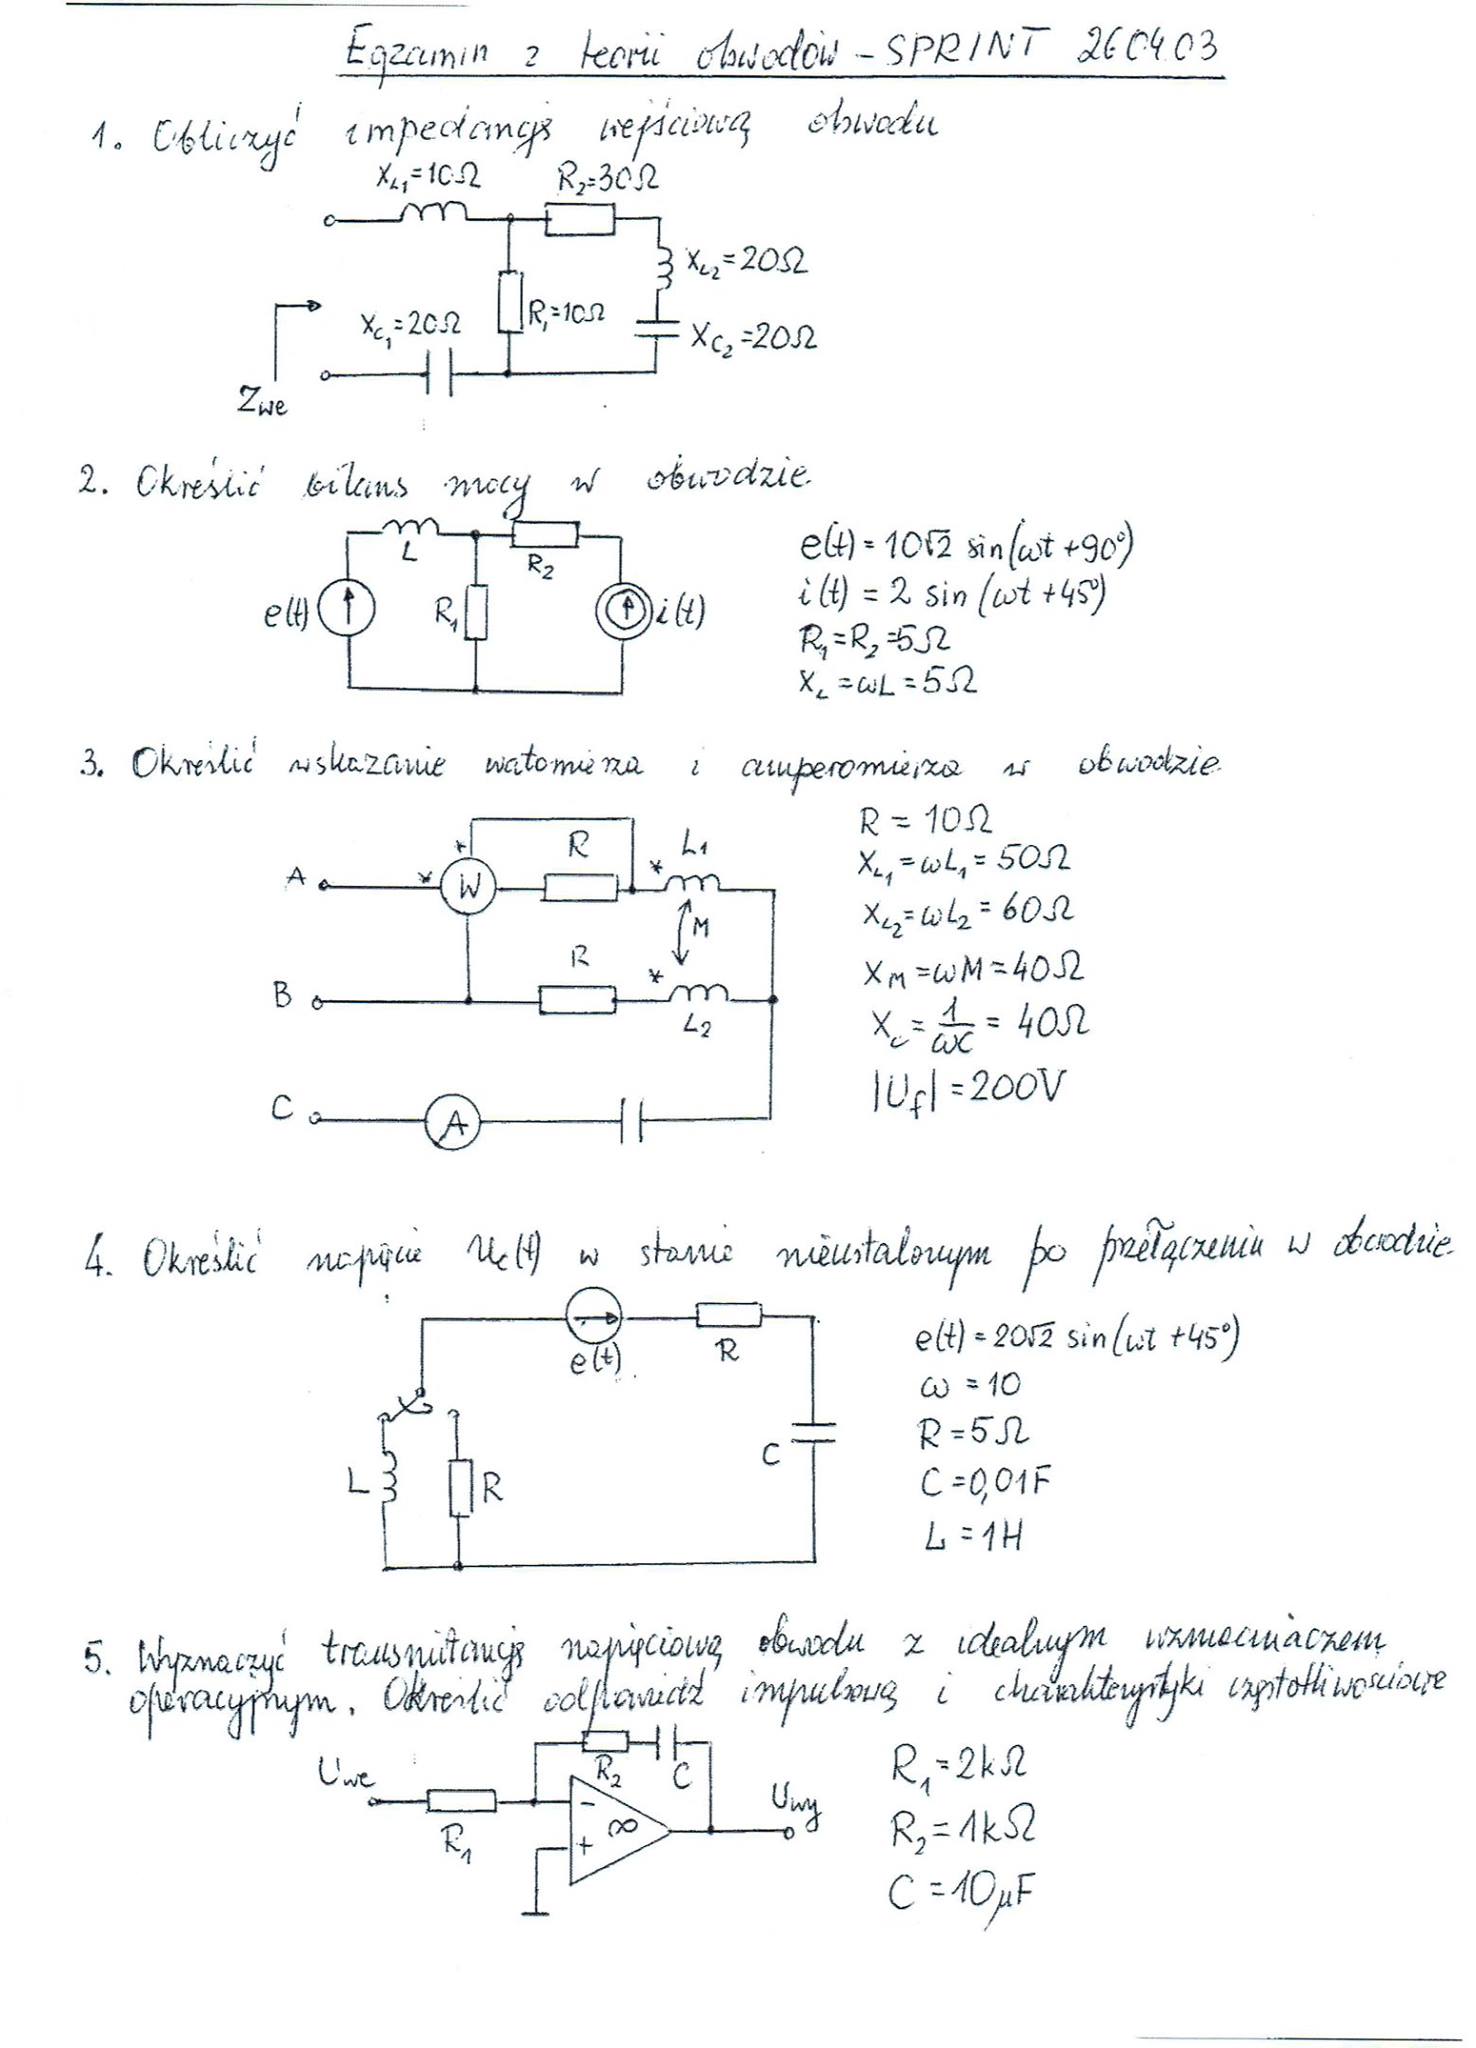 Egzamin z teorii obwodów - SPRINT 260403
1. Obliczyć impedancję wejściową obwodu
X_L1=10Ω R_2=30Ω
X_L2=20Ω
X_C1=20Ω R_1=10Ω X_C2=20Ω
Z_we
2. Określić bilans mocy w obwodzie.
L R_2
e(t) R_1 i(t)
e(t) = 10√2 sin(ωt +90°)
i(t) = 2 sin (ωt +45°)
R_1=R_2=5Ω
X_L =ωL =5Ω
3. Określić wskazanie watomierza i amperomierza w obwodzie.
A * * W R * L_1
M
B R * L_2
C A
R = 10Ω
X_L1=ωL_1= 50Ω
X_L2=ωL_2= 60Ω
X_M =ωM=40Ω
X_C= 1/ωC = 40Ω
|U_f| =200V
4. Określić napięcie u_c(t) w stanie nieustalonym po przełączeniu w obwodzie.
e(t) R
L R C
e(t) = 20√2 sin(ωt +45°)
ω =10
R =5Ω
C =0,01F
L =1H
5. Wyznaczyć transmitancję napięciową obwodu z idealnym wzmacniaczem
operacyjnym. Określić odpowiedź impulsową i charakterystyki częstotliwościowe
U_we R_2 C U_wy
R_1 - ∞ +
R_1=2kΩ
R_2=1kΩ
C =10μF